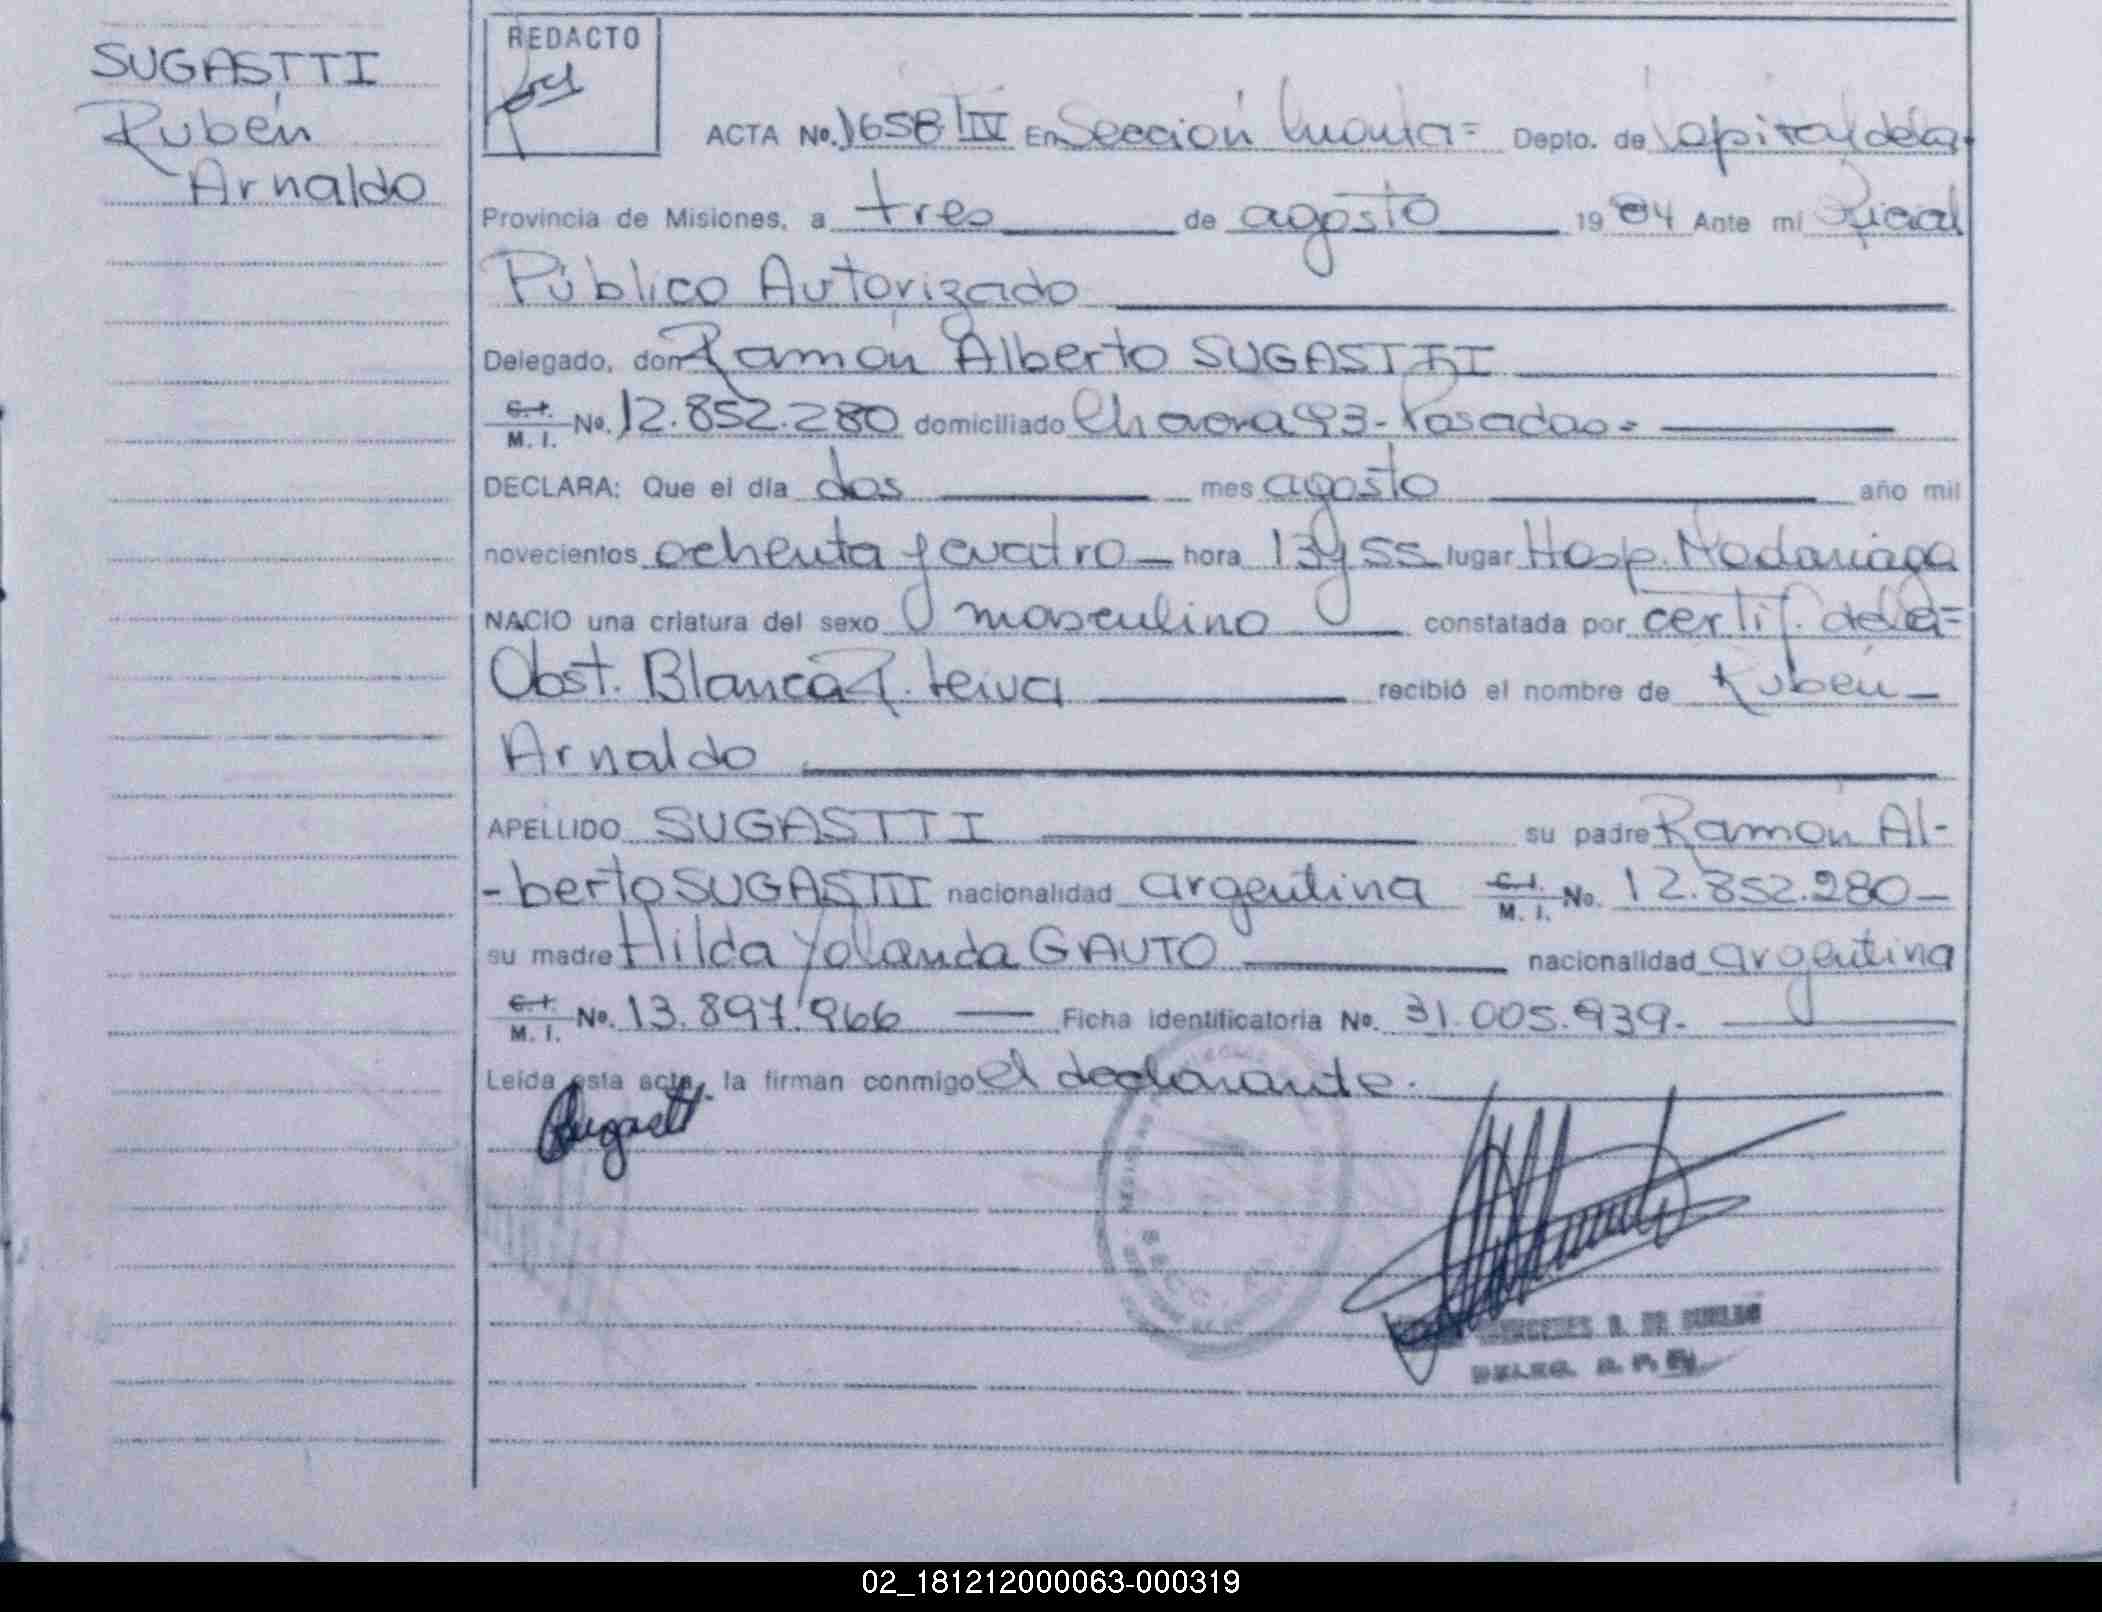 SUGASTTI
Rubén
Arnaldo
REDACTO
ACTA No. 1658/IV En Sección Cuarta= Depto. de Capital de la
Provincia de Misiones, a tres de agosto 1984 Ante mi Oficial
Público Autorizado
Delegado, don Ramón Alberto SUGASTTI
C.I. M. I. No. 12.852.280 domiciliado Chacra 93 - Posadas =
DECLARA: Que el día dos mes agosto año mil
novecientos ochenta y cuatro hora 13 y 55 lugar Hosp. Madariaga
NACIO una criatura del sexo masculino constatada por certif. de la =
Obst. Blanca R. Leiva recibió el nombre de Rubén
Arnaldo
APELLIDO SUGASTTI su padre Ramón Al-
-berto SUGASTTI nacionalidad argentina C.I. M. I. No. 12.852.280
su madre Hilda Yolanda GAUTO nacionalidad argentina
C.I. M. I. No. 13.897.966 Ficha Identificatoria No. 31.005.939.
Leída esta acta, la firman conmigo el declarante.
Sugastti
MERCEDES R. DE
DELEG.
02_181212000063-000319